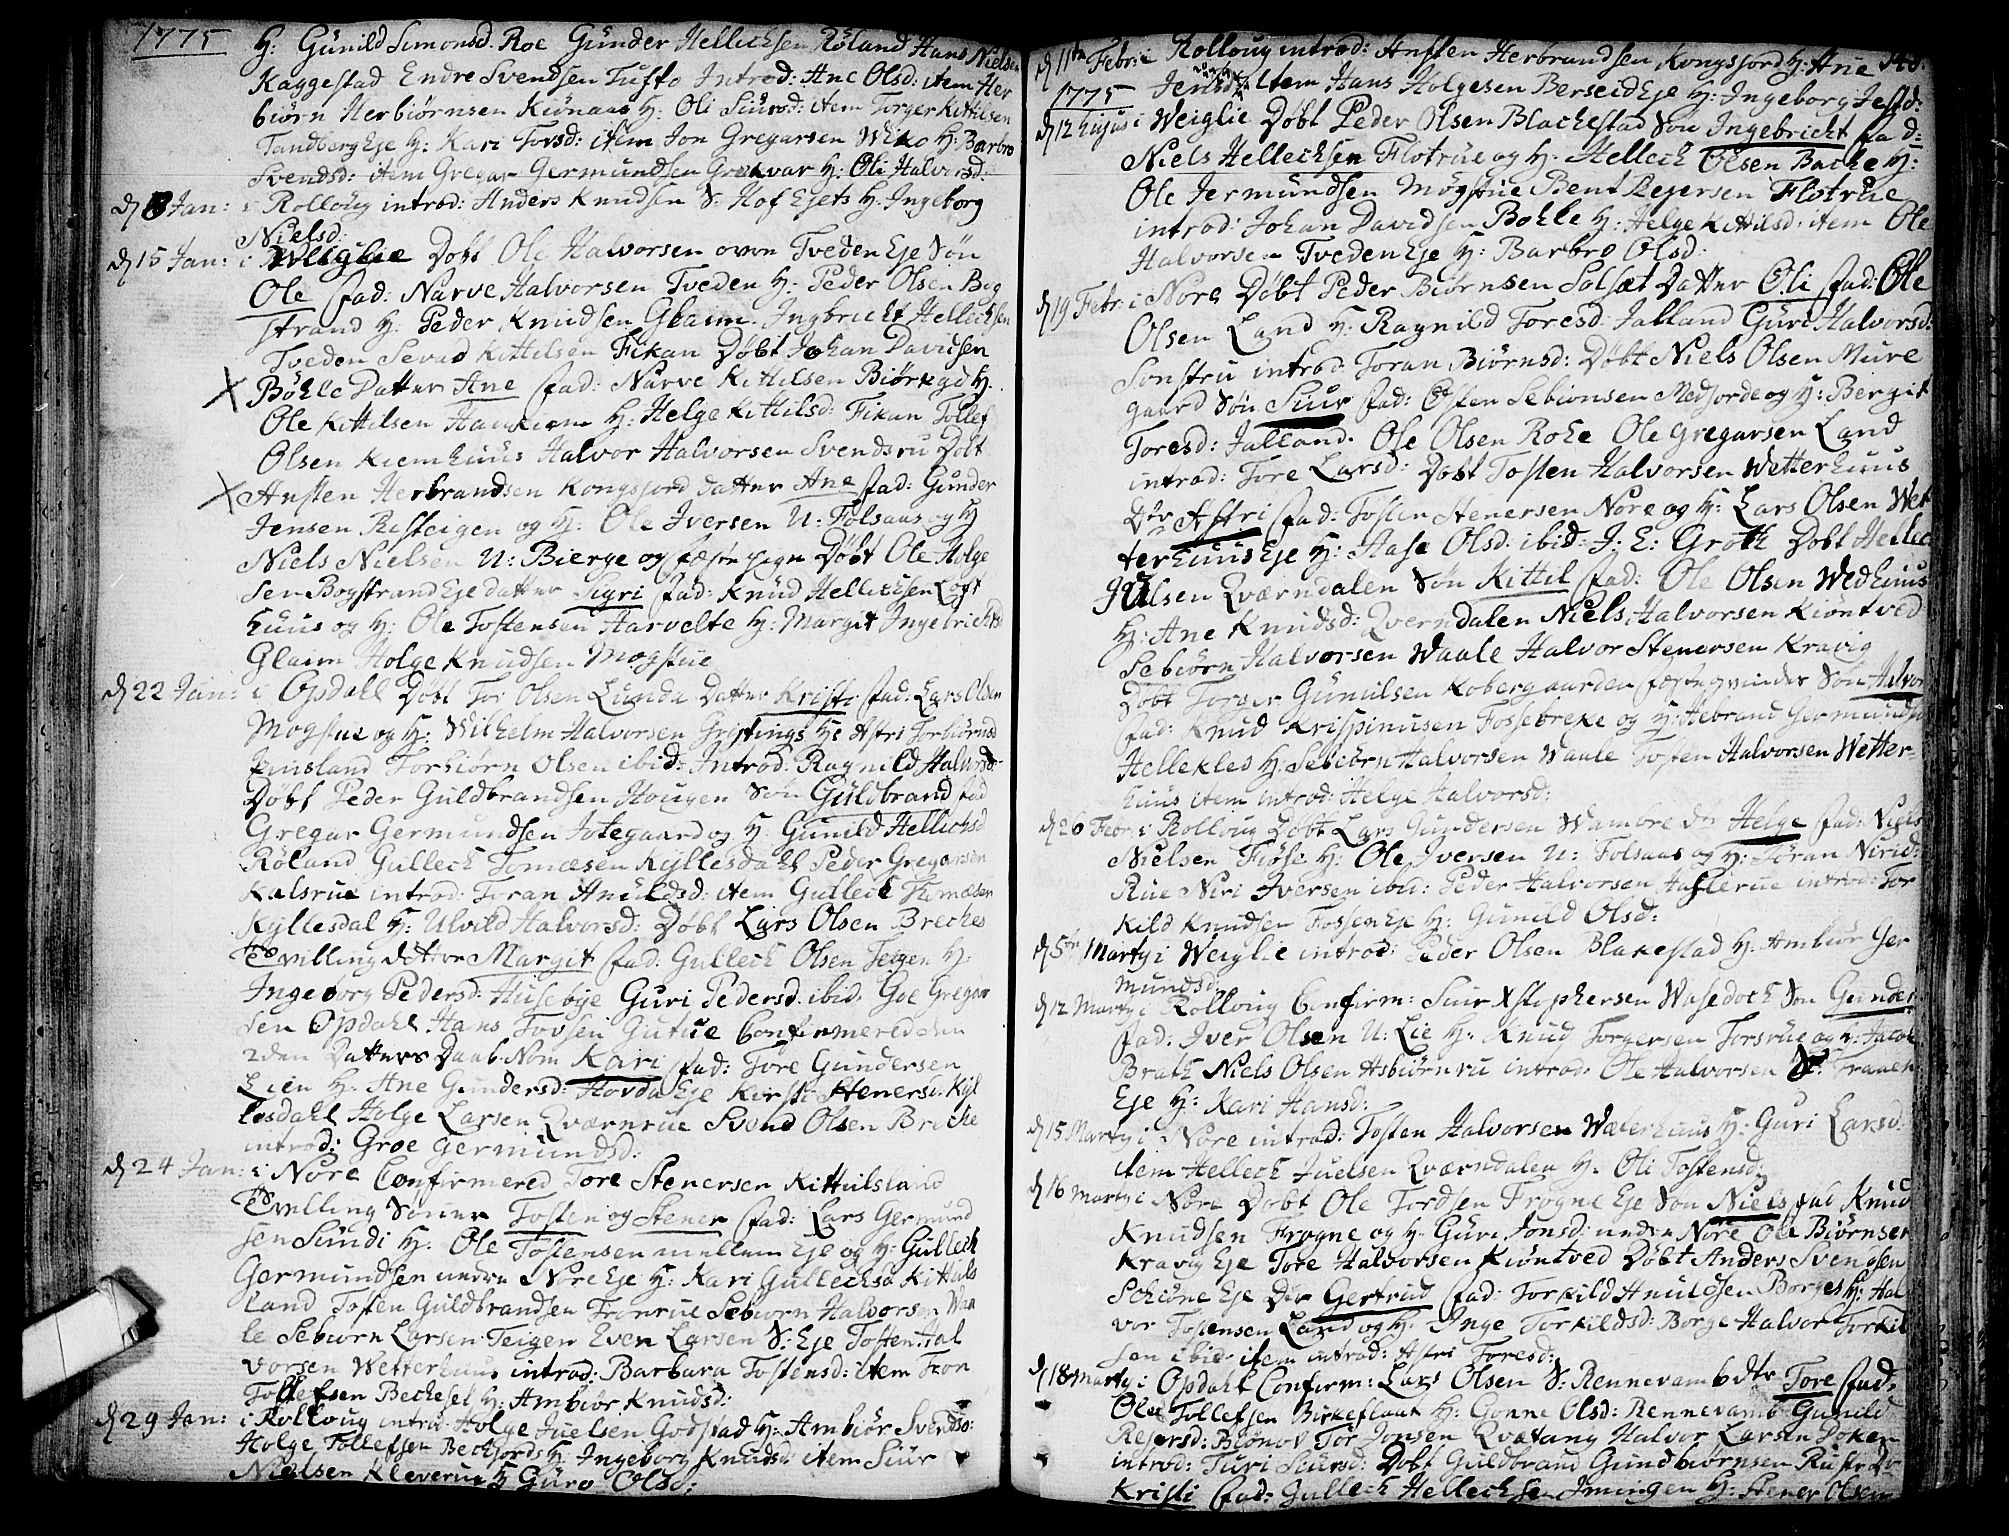 1775
H: Gunild Simonsd. Roe Gunder Hellechsen Röland Hans Nielsen
Kaggestad Endre Svendsen Tufto Introd: Ane Olsd: item Her
biørn Herbiørnsen Kiønaas H: Oli Siursd: item Torger Kittilsen
Tandberg Eje H: Kari Torsd: item Jon Gregarsen Wiko H: Barbro
Svendsd: item Gregar Germundsen Grøtvar H: Oli Halvorsd:
d 8 Jan: i Rolloug introd: Anders Knudsen S. Hof Ejets H. Ingeborg
Nielsd:
d 15 Jan: i Weiglie Døbt Ole Halvorsen Tveden Eje Søn
Ole fad: Narve Halvorsen Tveden H: Peder Olsen Bog
strand H: Peder Knudsen Glaim. Ingbricht Hellechsen
Tveden Sevad Kittilsen Fikan Døbt Johan Davidsen
Böhle Datter Ane fad: Narve Kittilsen Biørkgd H.
Ole Kittilsen H: Helge Kittilsd: Fikan Tollef
Olsen Kiemhuus Halvor Halvorsen Svendsru Døbt
Ansten Herbrandsen Kongsjord datter Ane fad: Gunder
Jensen Rasteigen og H: Ole Iversen U: Folsaas og H
Niels Nielsen U: Bierge og fæste pige Døbt Ole Holge
sen Bogstrand Eje datter Sigri fad: Knud Hellechsen Loft
huus og H: Ole Tostensen Aarvelte H: Margit Ingebrichtsd
Glaim Holge Knudsen Mogstue
d 22 Jan: i Opdahl Døbt Tor Olsen Lunda Datter Kristi fad: Lars Olsen
Mogstue og H: Wilhelm Halvorsen Grøtings H: Astri Torbiørnsd
Juvsland Torbiørn Olsen ibid: Introd: Ragnild Halvorsd:
Døbt Peder Guldbrandsen Hougen Søn Guldbrand fad
Gregar Germundsen Jotegaard og H: Gunild Hellichsd
Røland Gulleck Tomæsen Kyllesdahl Peder Gregarsen
Kalsrue introd: Toran Anuldsd: item Gulleck Tomæsen
Kyllesdal H: Ulvild Halvorsd: Døbt Lars Olsen Breches
Tvilling datter Margit fad: Gulleck Olsen Teigen H.
Ingeborg Pedersd: Husebye Guri Pedersd. ibid. Goe Gregar
sen Opdahl Hans Tovsen Gutue Confirmered den
2den Datters Daab. Nom Kari fad: Tore Gundersen
Lien H: Ane Gundersd: Hovda Eje Kirsti Stenersd. Kyl
lesdahl Holge Larsen Qværnrue Svend Olsen Breche
introd: Groe Germundsd:
d 24 Jan: i Nore Confirmered Tore Stenersen Kittulsland
Tvilling Sønner Tosten og Stener fad: Lars Germund
sen Sundi H: Ole Tostensen mellem Eje og H: Gulleck
Germundsen nedre Nore Eje H: Kari Gullechsd Kittuls
land Tosten Guldbrandsen Tronrue Sebiørn Halvorsen Waa
le Sebiørn Larsen Teigen Even Larsen S: Eje Tosten Hal
vorsen Wetterhuus introd: Barbara Tostensd: item Tron
Tollefsen Bechesel H: Ambiør Knudsd:
d 29 Jan: i Rolloug introd: Holge Juelsen Godstad H: Ambiør Svendsd:
Holge Tollefsen Bechjords H Ingeborg Knudsd: item Siur
Nielsen Kleverue H Guro Olsd:
d 11te Febr: i Rolloug introd: Ansten Herbrandsen Kongsjord H: Ane
1775 Jensd item Hans Holgesen Berseid Eje H: Ingeborg Jensd:
d 12 hujus i Weiglie Døbt Peder Olsen Blachestad Søn Ingebricht fad:
Niels Hellechsen Flotrue og H: Helleck Olsen Bache H:
Ole Jermundsen Mogstue Bent Rejersen Flotrue
introd: Johan Davidsen Bohle H: Helge Kittilsd: item Ole
Halvorsen Tveden Eje H: Barbro Olsd:
d 19 Febr: i Nore Døbt Peder Biørnsen Solsæt Datter Oli fad: Ole
Olsen Land H: Ragnild Toresd: Jalland Guri Halvorsd:
Sønstru introd: Toran Biørnsd: Døbt Niels Olsen Mure
gaard Søn Siur fad: Østen Sebiønsen Medjorde og H: Bergit
Toresd: Jalland. Ole Olsen Rohe Ole Gregarsen Land
introd: Tore Larsd: Døbt Tosten Halvorsen Wetterhuus
Dtr Astri fad: Tosten Stenersen Nore og H: Lars Olsen Wet
terhuus Eje H: Aase Olsd: ibid: J. E: Groth Døbt Hellec
Julsen Qværndalen Søn Kittil fad: Ole Olsen Wedhuus
H: Ane Knudsd: Qverndalen Niels Halvorsen Kiøntved
Sebiørn Halvorsen Waale Halvor Stenersen Kravig
Døbt Torger Gunulsen Kobergaarden Søn Halvor
fad: Knud Krispinusen Fossebreke og H: Hebrand Germundsen
Hellekles H: Sebiørn Halvorsen Waale Tosten Halvorsen Wetter-
huus item introd: Helge Halvorsd:
d 26 Febr: i Rolloug Døbt Lars Gundersen Wamore Dtr Helge fad: Niels
Nielsen Fiøse H: Ole Iversen U: Folsaas og H: Jøran Nirid:
Rue Niri Iversen ibid: Peder Halvorsen Haslerue introd: Tor
kild Knudsen Fossen Eje H: Gunild Olsd:
d 5te Marty i Weiglie introd: Peder Olsen Blakestad H: Ambiør Ger
mundsd:
d 12 Marty i Rolloug Confirm: Siur Xstophersen Wasedock Søn Gunder
fad: Iver Olsen U: Lie H: Knud Torgersen Torsrue og H: Jacob
Brath Niels Olsen Asbiørnru introd: Ole Halvorsen S: Traaen
Eje H: Kari Hansd:
d 15 Marty i Nore introd: Tosten Halvorsen Wæterhuus H: Guri Larsd:
item Helleck Juelsen Qværndalen H: Oli Tostensd:
d 16 Marty i Nore Døbt Ole Tordsen Frogne Eje Søn Niels fad Knud
Knudsen Frogne og H: Guri Jonsd: nedre Nore Ole Biørnsen
Kravig Eje Tore Halvorsen Kiøntved Døbt Anders Svendsen
Schiøne Eje Dtr Gertrud fad: Torkild Anuldsen Borges H: Hal
vor Tostensen Land og H: Inge Torkildsd: Borge Halvor Torkil
sen ibid: item introd: Astri Toresd:
d 18 Marty i Opdahl Confirm: Lars Olsen S: Rennevamb dtr Tore fad:
Ole Tollefsen Birkeflaat H: Gonne Olsd: Rennevamb Gunild
Rejersd: Biønov Tor Jonsen Qvævang Halvor Larsen Søker
introd: Turi Siursd: Døbt Guldbrand Gundbiørnsen Ruste Dr
Kristi fad: Gulleck Hellechsen Imingen H: Stener Olsen